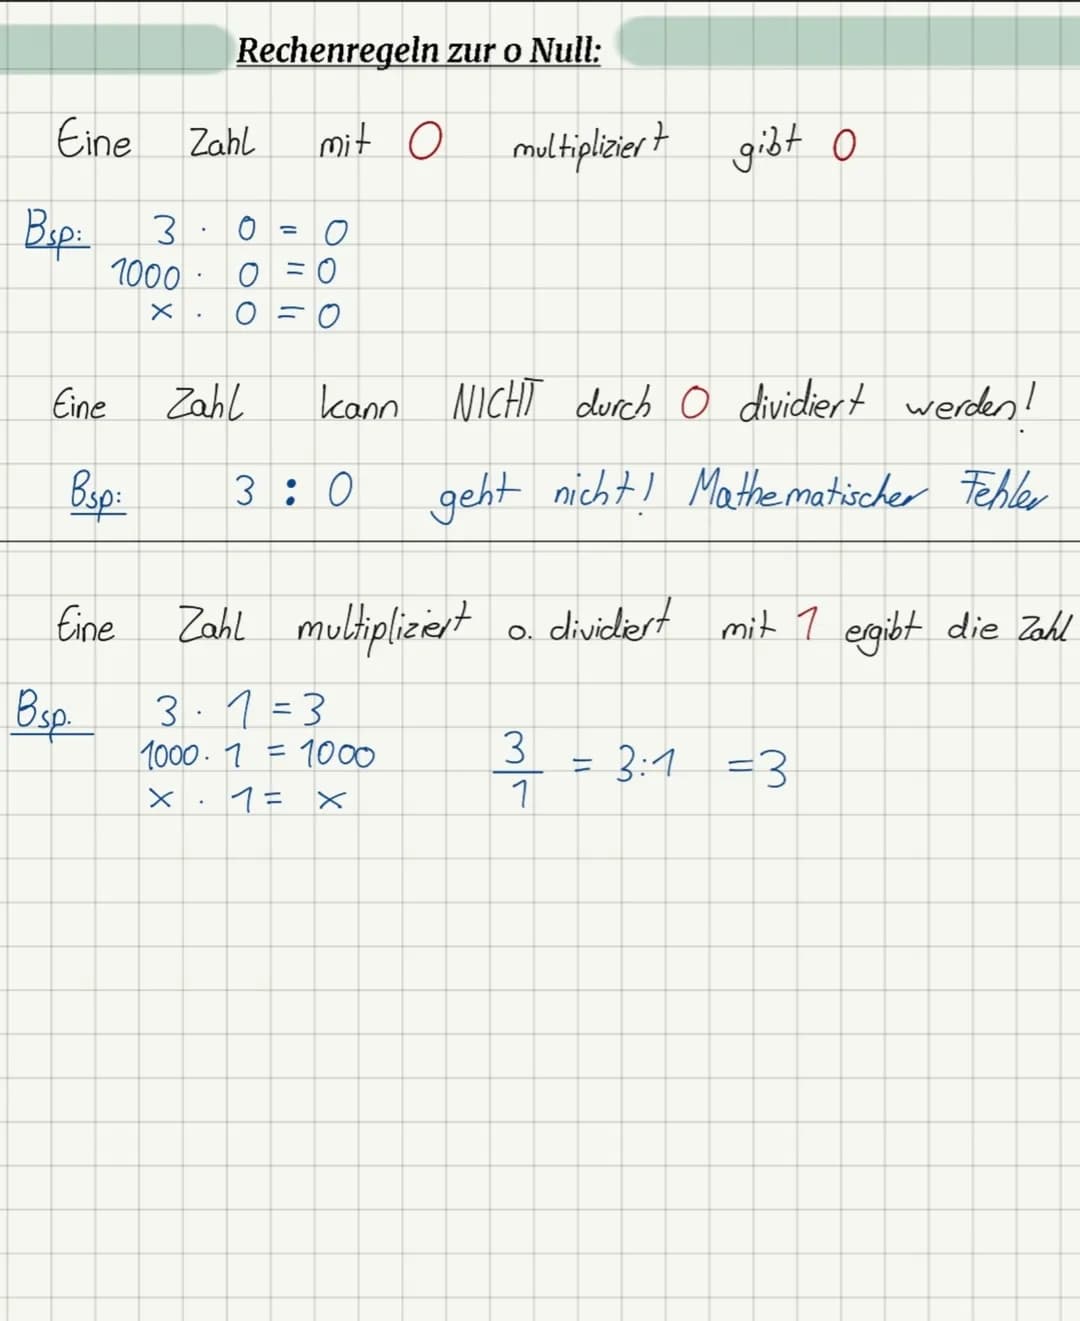 Rechenregeln zur 0 Null:
Eine Zahl mit 0 multipliziert gibt 0
Bsp: 3 · 0 = 0
1000 · 0 = 0
x · 0 = 0
Eine Zahl kann NICHT durch 0 dividiert werden!
Bsp: 3 : 0 geht nicht! Mathematischer Fehler
Eine Zahl multipliziert o. dividiert mit 1 ergibt die Zahl
Bsp. 3 · 1 = 3
1000 · 1 = 1000
x · 1 = x
3/1 = 3:1 = 3